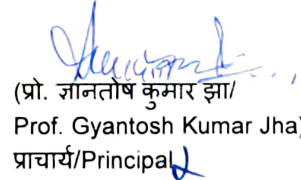 (प्रो. ज्ञानतोष कुमार झा/
Prof. Gyantosh Kumar Jha)
प्राचार्य/Principal